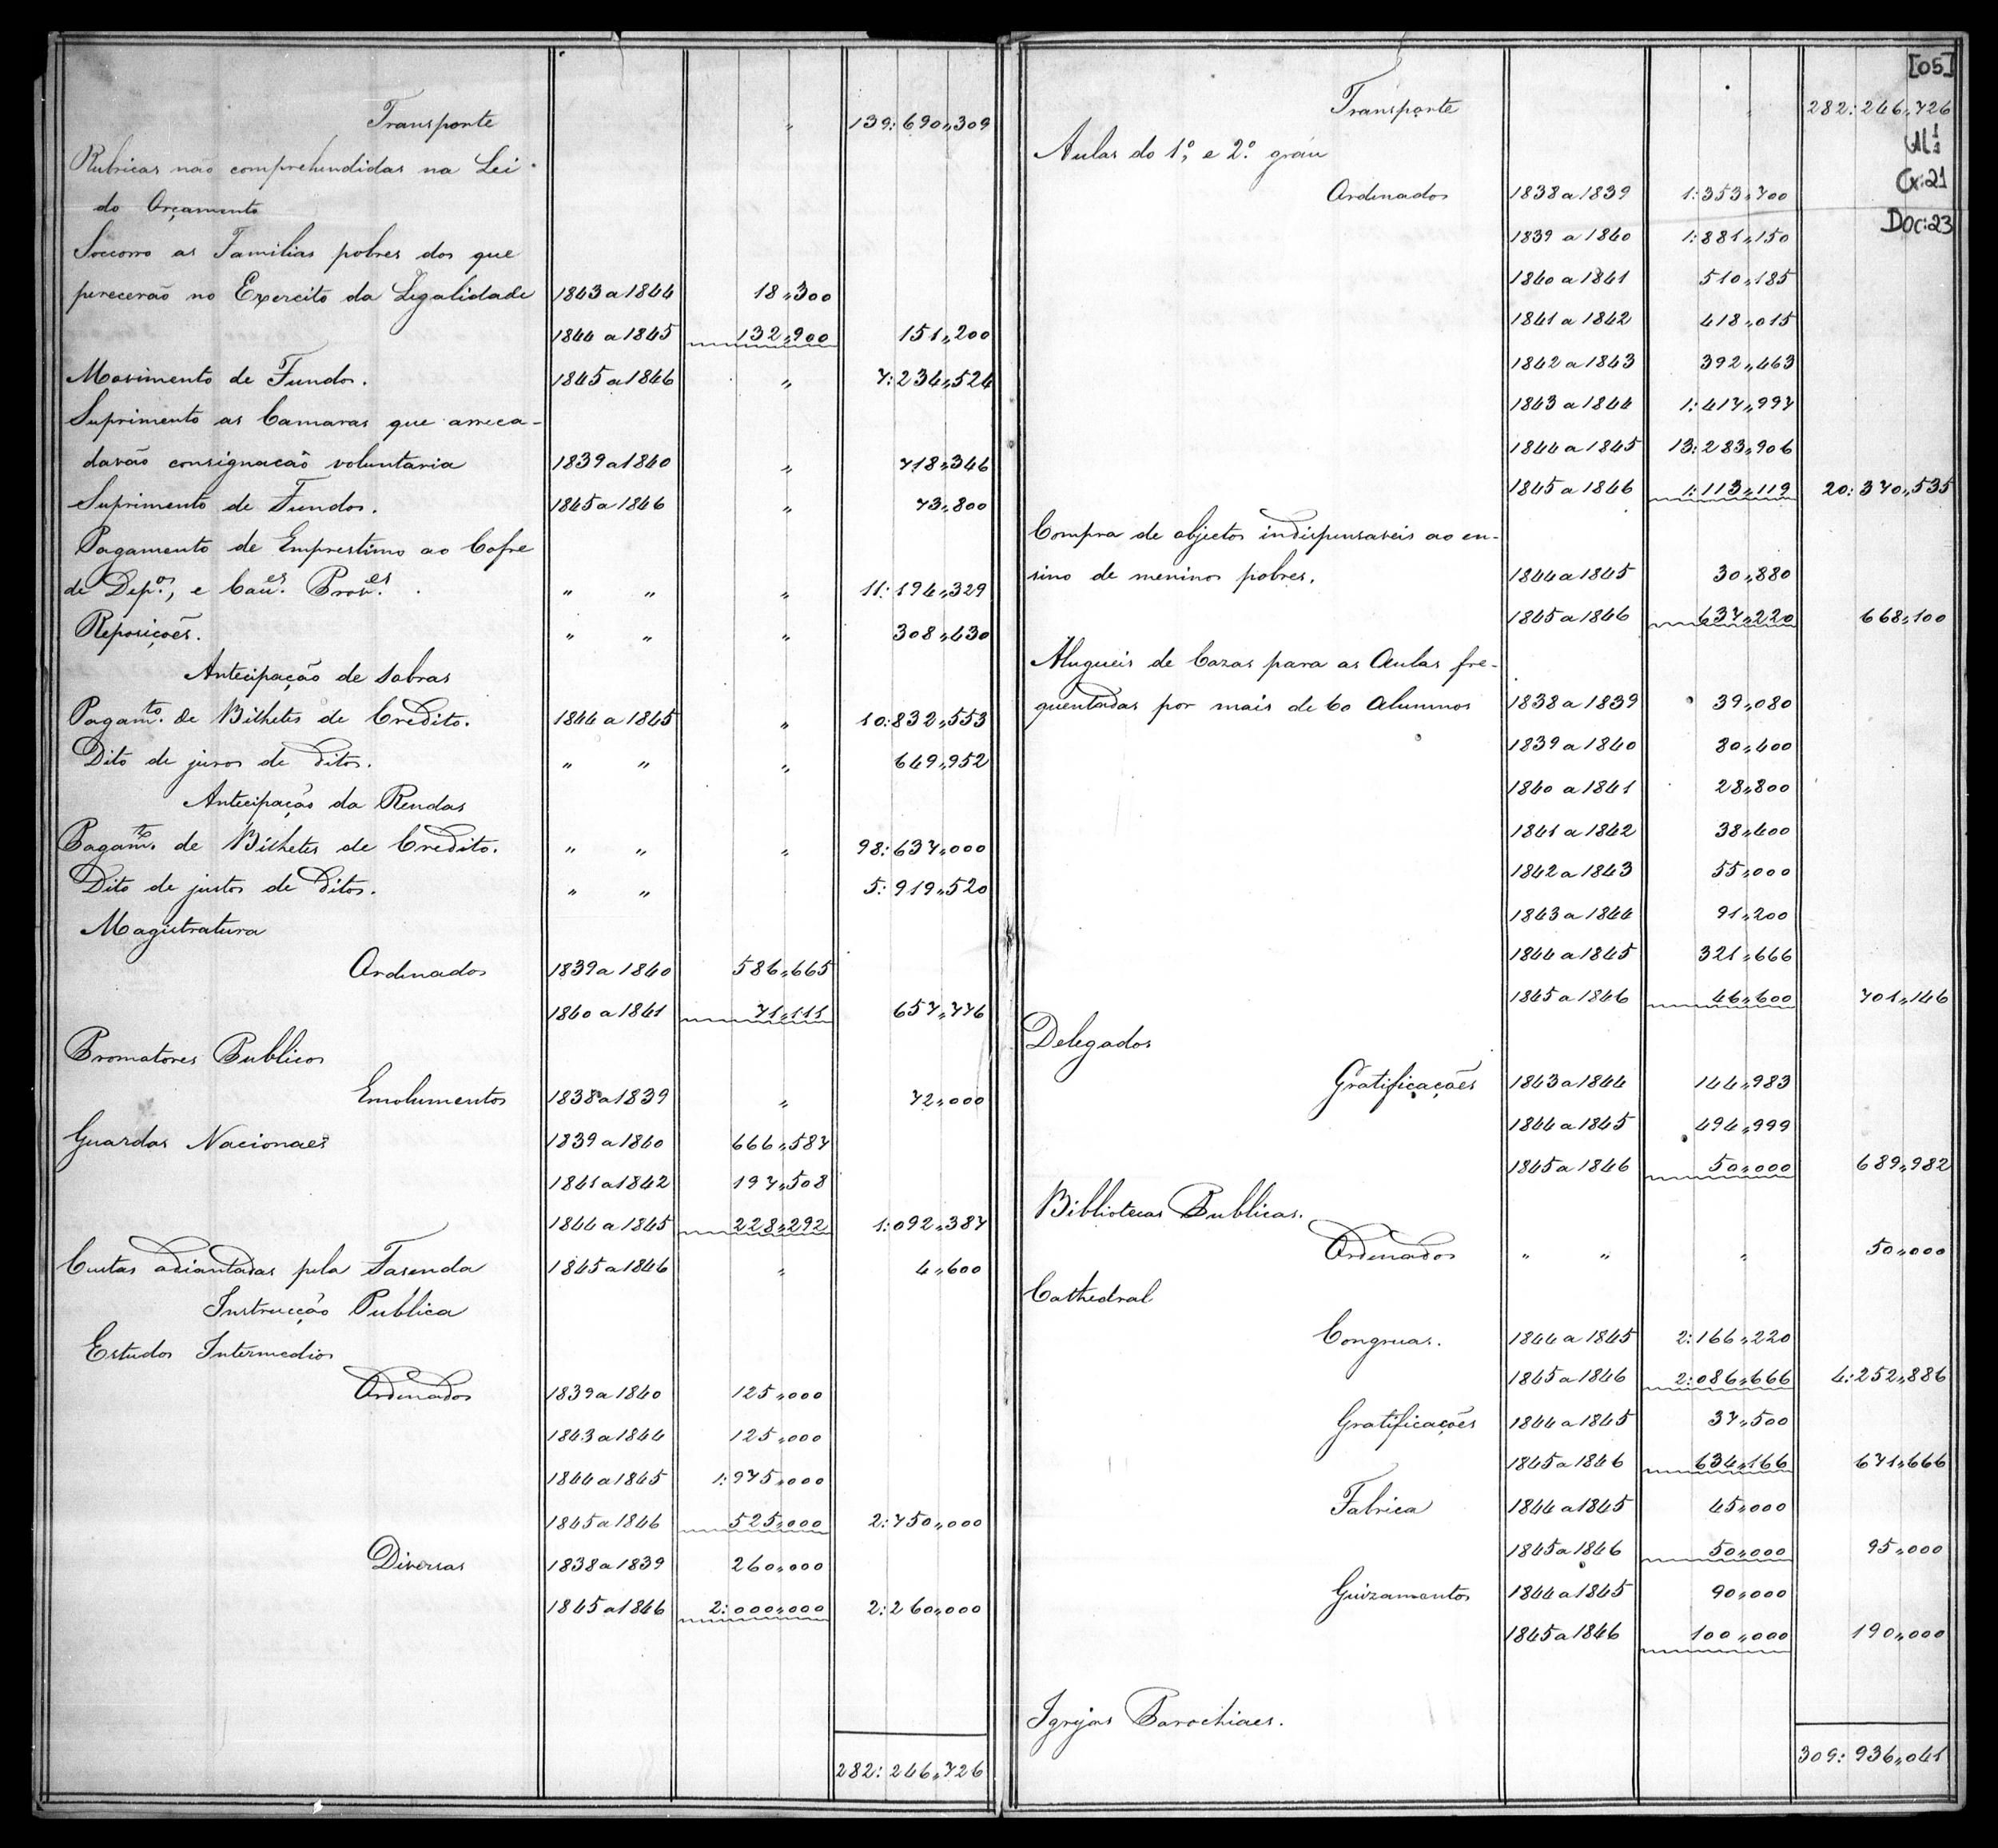 Transporte „ 139:690„309
Rubricas não comprehendidas na Lei
do Orçamento
Soccorro as Familias pobres dos que
perecerão no Exercito da Legalidade 1843 a 1844 18„300
1844 a 1845 132„900 151„200
Movimento de Fundos. 1845 a 1846 „ 7:234„524
Suprimento as Camaras que arreca-
davão consignacaõ voluntaria 1839 a 1840 „ 718„346
Suprimento de Fundos. 1845 a 1846 „ 73„800
Pagamento de Emprestimo ao Cofre
de Dep.os, e Cau.es Prov.es „ „ „ 11:194„329
Reposiçoẽs. „ „ „ 308„430
Antecipação de sobras
Pagam.to de Bilhetes de Credito. 1844 a 1845 „ 10:832„553
Dito de juros de ditos. „ „ „ 649„952
Antecipação da Rendas
Pagam.to de Bilhetes de Credito. „ „ „ 98:637„000
Dito de justos de ditos. „ „ 5:919„520
Magistratura
Ordinados 1839 a 1840 586„665
1840 a 1841 71„111 657„776
Promatores Publicos
Emolumentos 1838 a 1839 „ 72„000
Guardas Nacionaes 1839 a 1840 666„587
1841 a 1842 197„508
1844 a 1845 228„292 1:092„387
Custas adiantadas pela Fasenda 1845 a 1846 „ 4„600
Instrucção Publica
Estudos Intermedios
Ordenados 1839 a 1840 125„000
1843 a 1844 125„000
1844 a 1845 1:975„000
1845 a 1846 525„000 2:750„000
Diversas 1838 a 1839 260„000
1845 a 1846 2:000„000 2:260„000
282:246„726
[05]
Transporte „ 282:246„726
Cx:21
Doc:23
Aulas do 1.º, e 2.º gráu
Ordinados 1838 a 1839 1:353„700
1839 a 1840 1:881„150
1840 a 1841 510„185
1841 a 1842 418„015
1842 a 1843 392„463
1843 a 1844 1:417„997
1844 a 1845 13:283„906
1845 a 1846 1:113„119 20:370„535
Compra de objectos indispensaveis ao en-
sino de meninos pobres. 1844 a 1845 30„880
1845 a 1846 637„220 668„100
Alugueis de Cazas para as Aulas fre-
quentadas por mais de 60 Alumnos 1838 a 1839 39„080
1839 a 1840 80„400
1840 a 1841 28„800
1841 a 1842 38„400
1842 a 1843 55„000
1843 a 1844 91„200
1844 a 1845 321„666
1845 a 1846 46„600 701„146
Delegados
Gratificações 1843 a 1844 144„983
1844 a 1845 494„999
1845 a 1846 50„000 689„982
Bibliotecas Publicas.
Ordenados „ „ „ 50„000
Cathedral
Congruas. 1844 a 1845 2:166„220
1845 a 1846 2:086„666 4:252„886
Gratificações 1844 a 1845 37„500
1845 a 1846 634„166 671„666
Fabrica 1844 a 1845 45„000
1845 a 1846 50„000 95„000
Guizamentos 1844 a 1845 90„000
1845 a 1846 100„000 190„000
Igrejas Parochiaes.
309:936„041